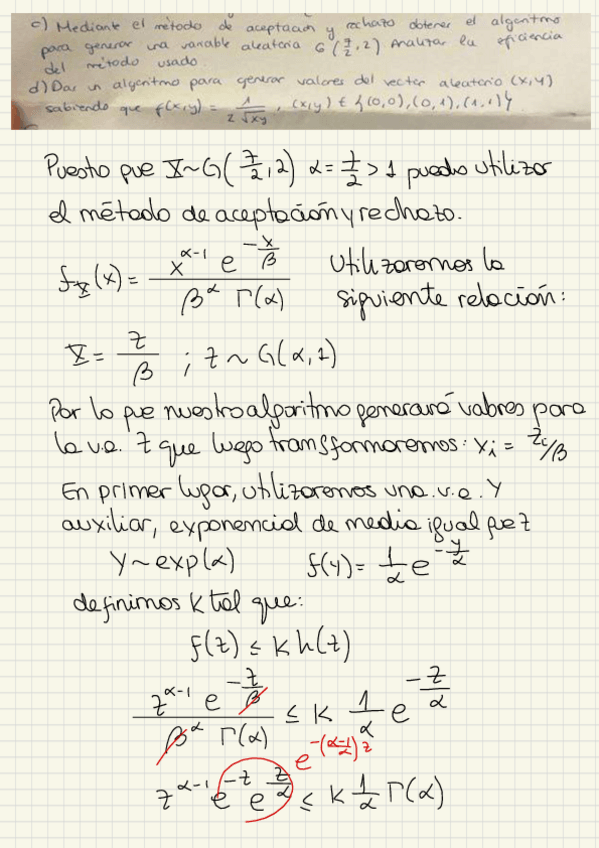 c) Mediante el método de aceptación y rechazo obtener el algoritmo
para generar una variable aleatoria G(7/2, 2) Analizar la eficiencia
del método usado.
d) Dar un algoritmo para generar valores del vector aleatorio (x,y)
sabiendo que f(x,y) = 1/(2√xy) , (x,y) ∈ {(0,0), (0,1), (1,1)}
Puesto que X~G(7/2, 2) α = 7/2 > 1 puedo utilizar
el método de aceptación y rechazo.
f_X(x) = x^(α-1) e^(-x/β) / (β^α Γ(α)) Utilizaremos la
siguiente relación:
X = z/β ; z ~ G(α,1)
Por lo que nuestro algoritmo generará valores para
la v.a. z que luego transformaremos: x_i = z_i/β
En primer lugar, utilizaremos una v.a. Y
auxiliar, exponencial de media igual que z
Y ~ exp(α) f(y) = 1/α e^(-y/α)
definimos K tal que:
f(z) ≤ K h(z)
z^(α-1) e^(-z/β) / (β^α Γ(α)) ≤ K 1/α e^(-z/α)
e^(-(α-1/α) z)
z^(α-1) e^(-z) e^(z/α) ≤ K 1/α Γ(α)